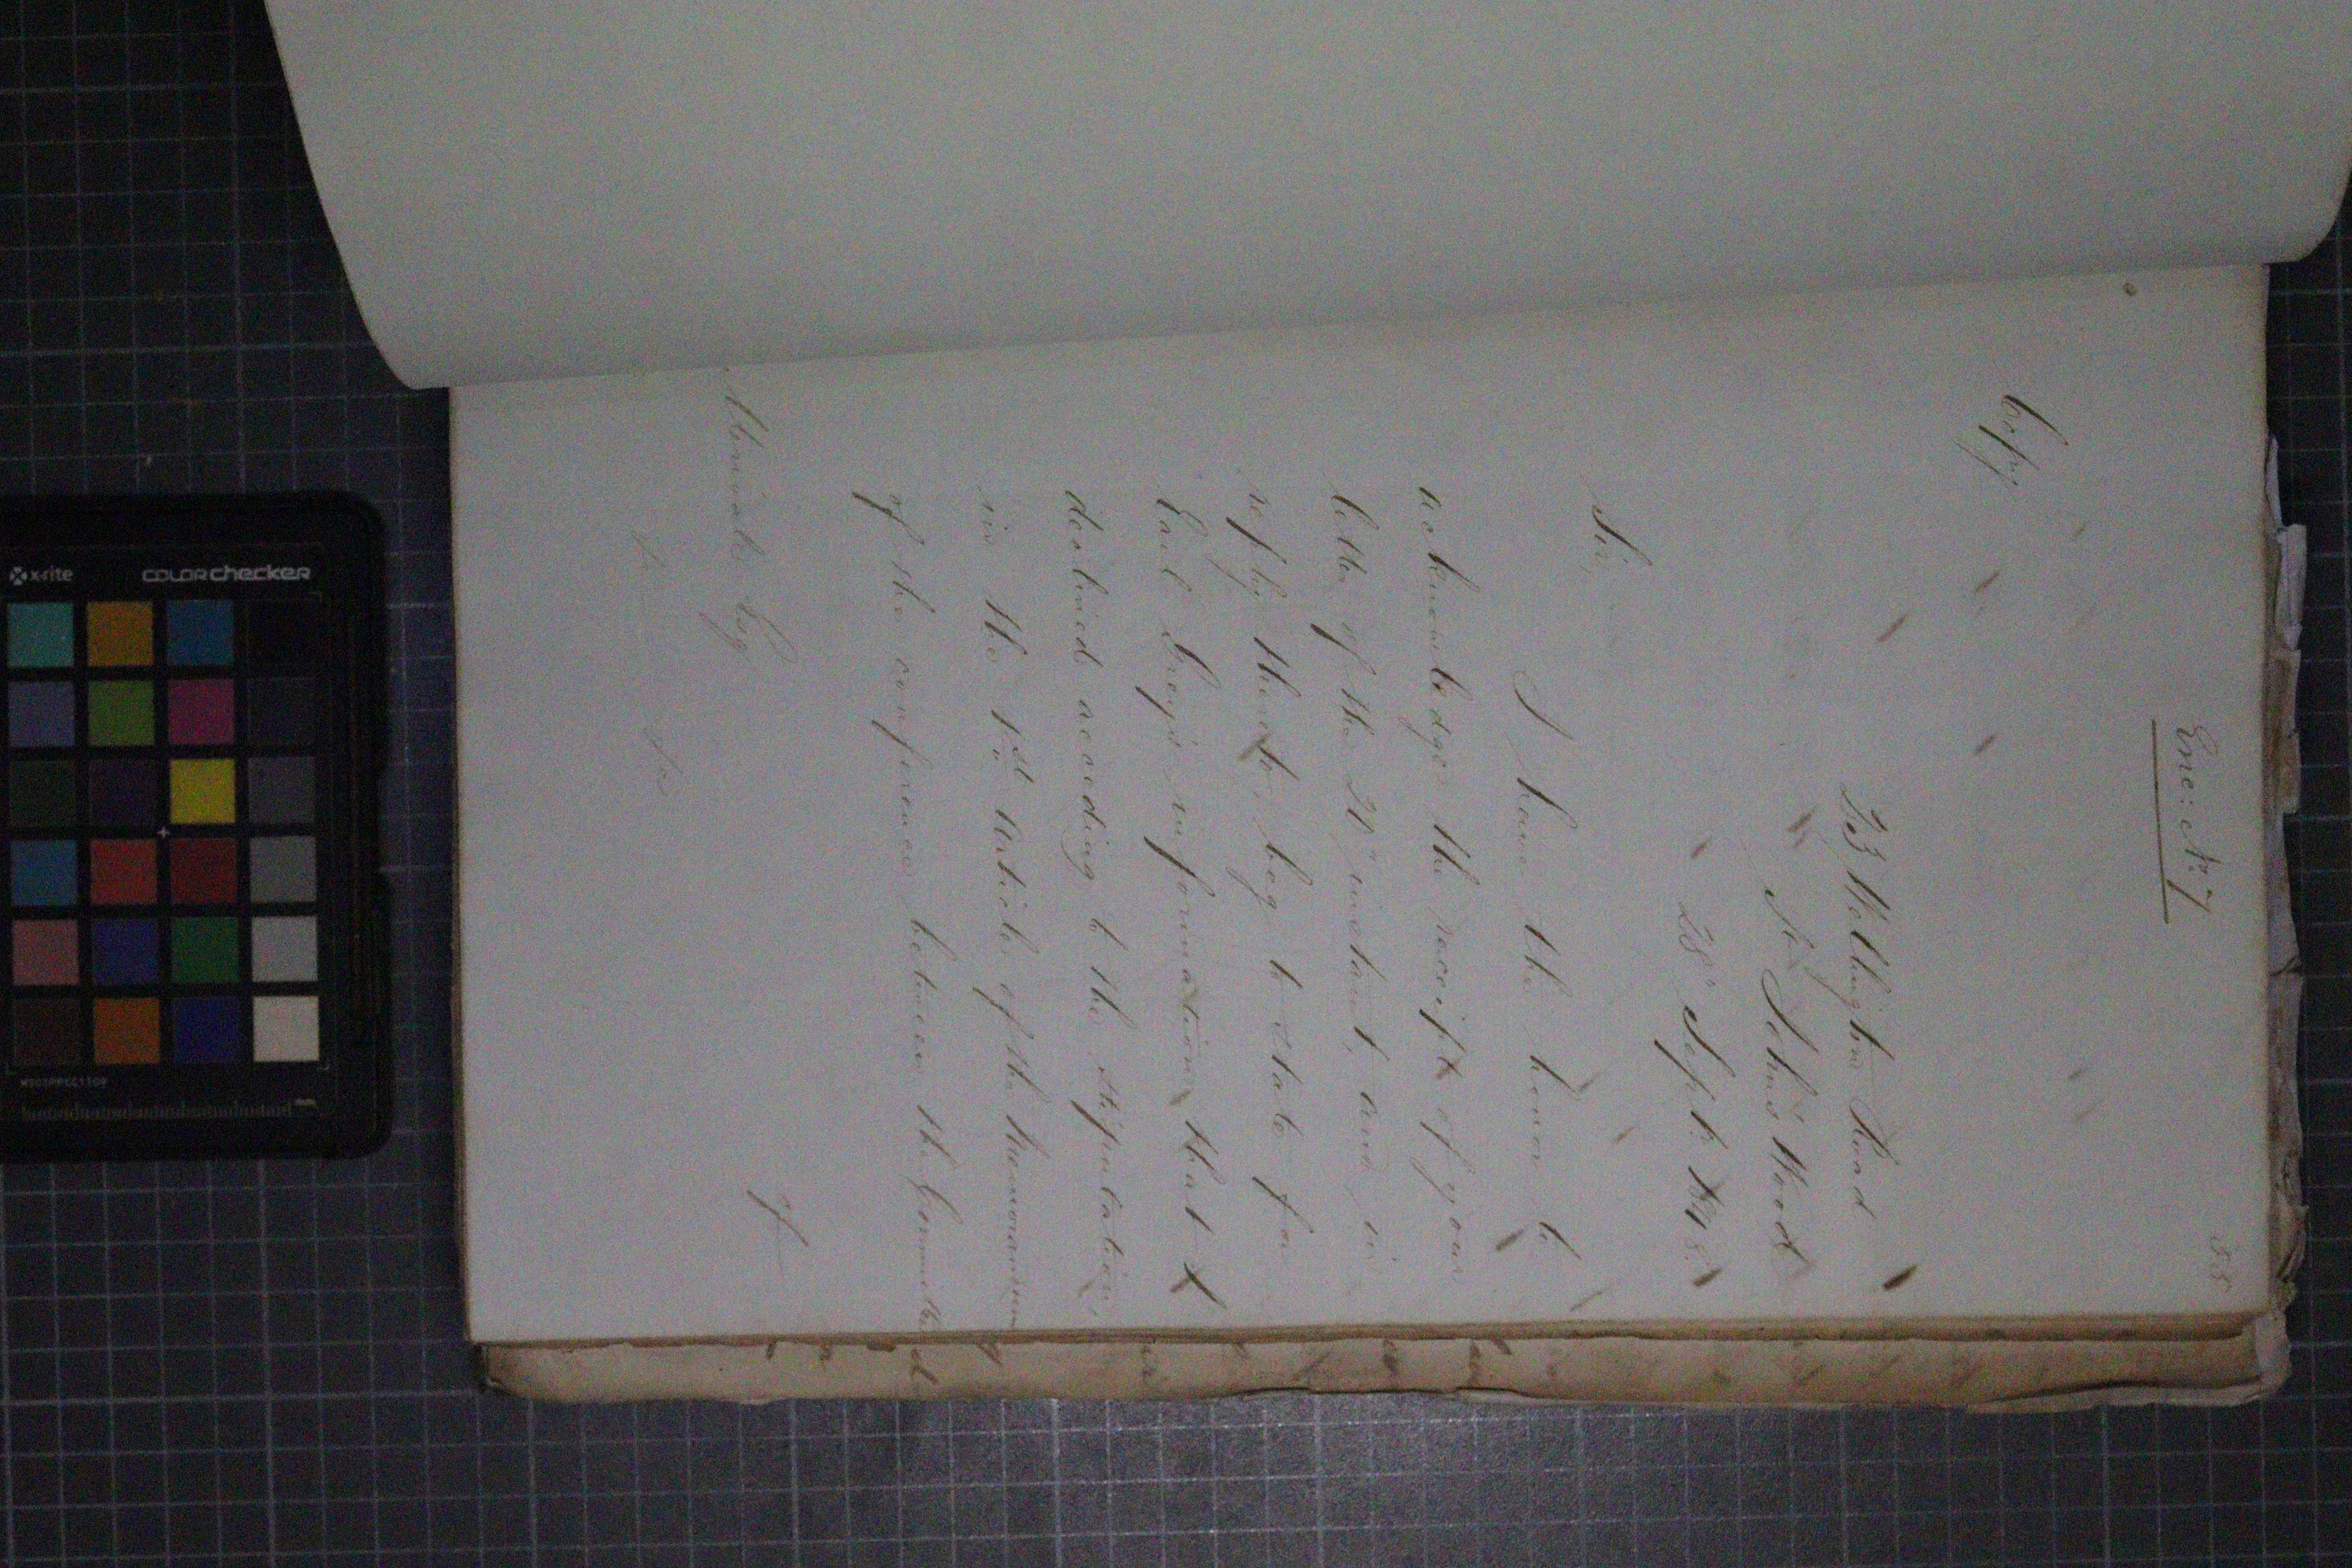 55
Enc: No. 7
Copy
33 Wellington Road
St. John's Wood
28 Sept. 1848.
Sir,
I have the honor to
acknowledge the receipt of your
letter of the 21 instant, and in
reply thereto, beg to state for
Earl Grey's information that I
declined acceding to the stipulation,
in the 1st Article of the Memorandum
of the conference between the Committee
of
Merivale Esqr.
&c &c
x-rite
colorchecker